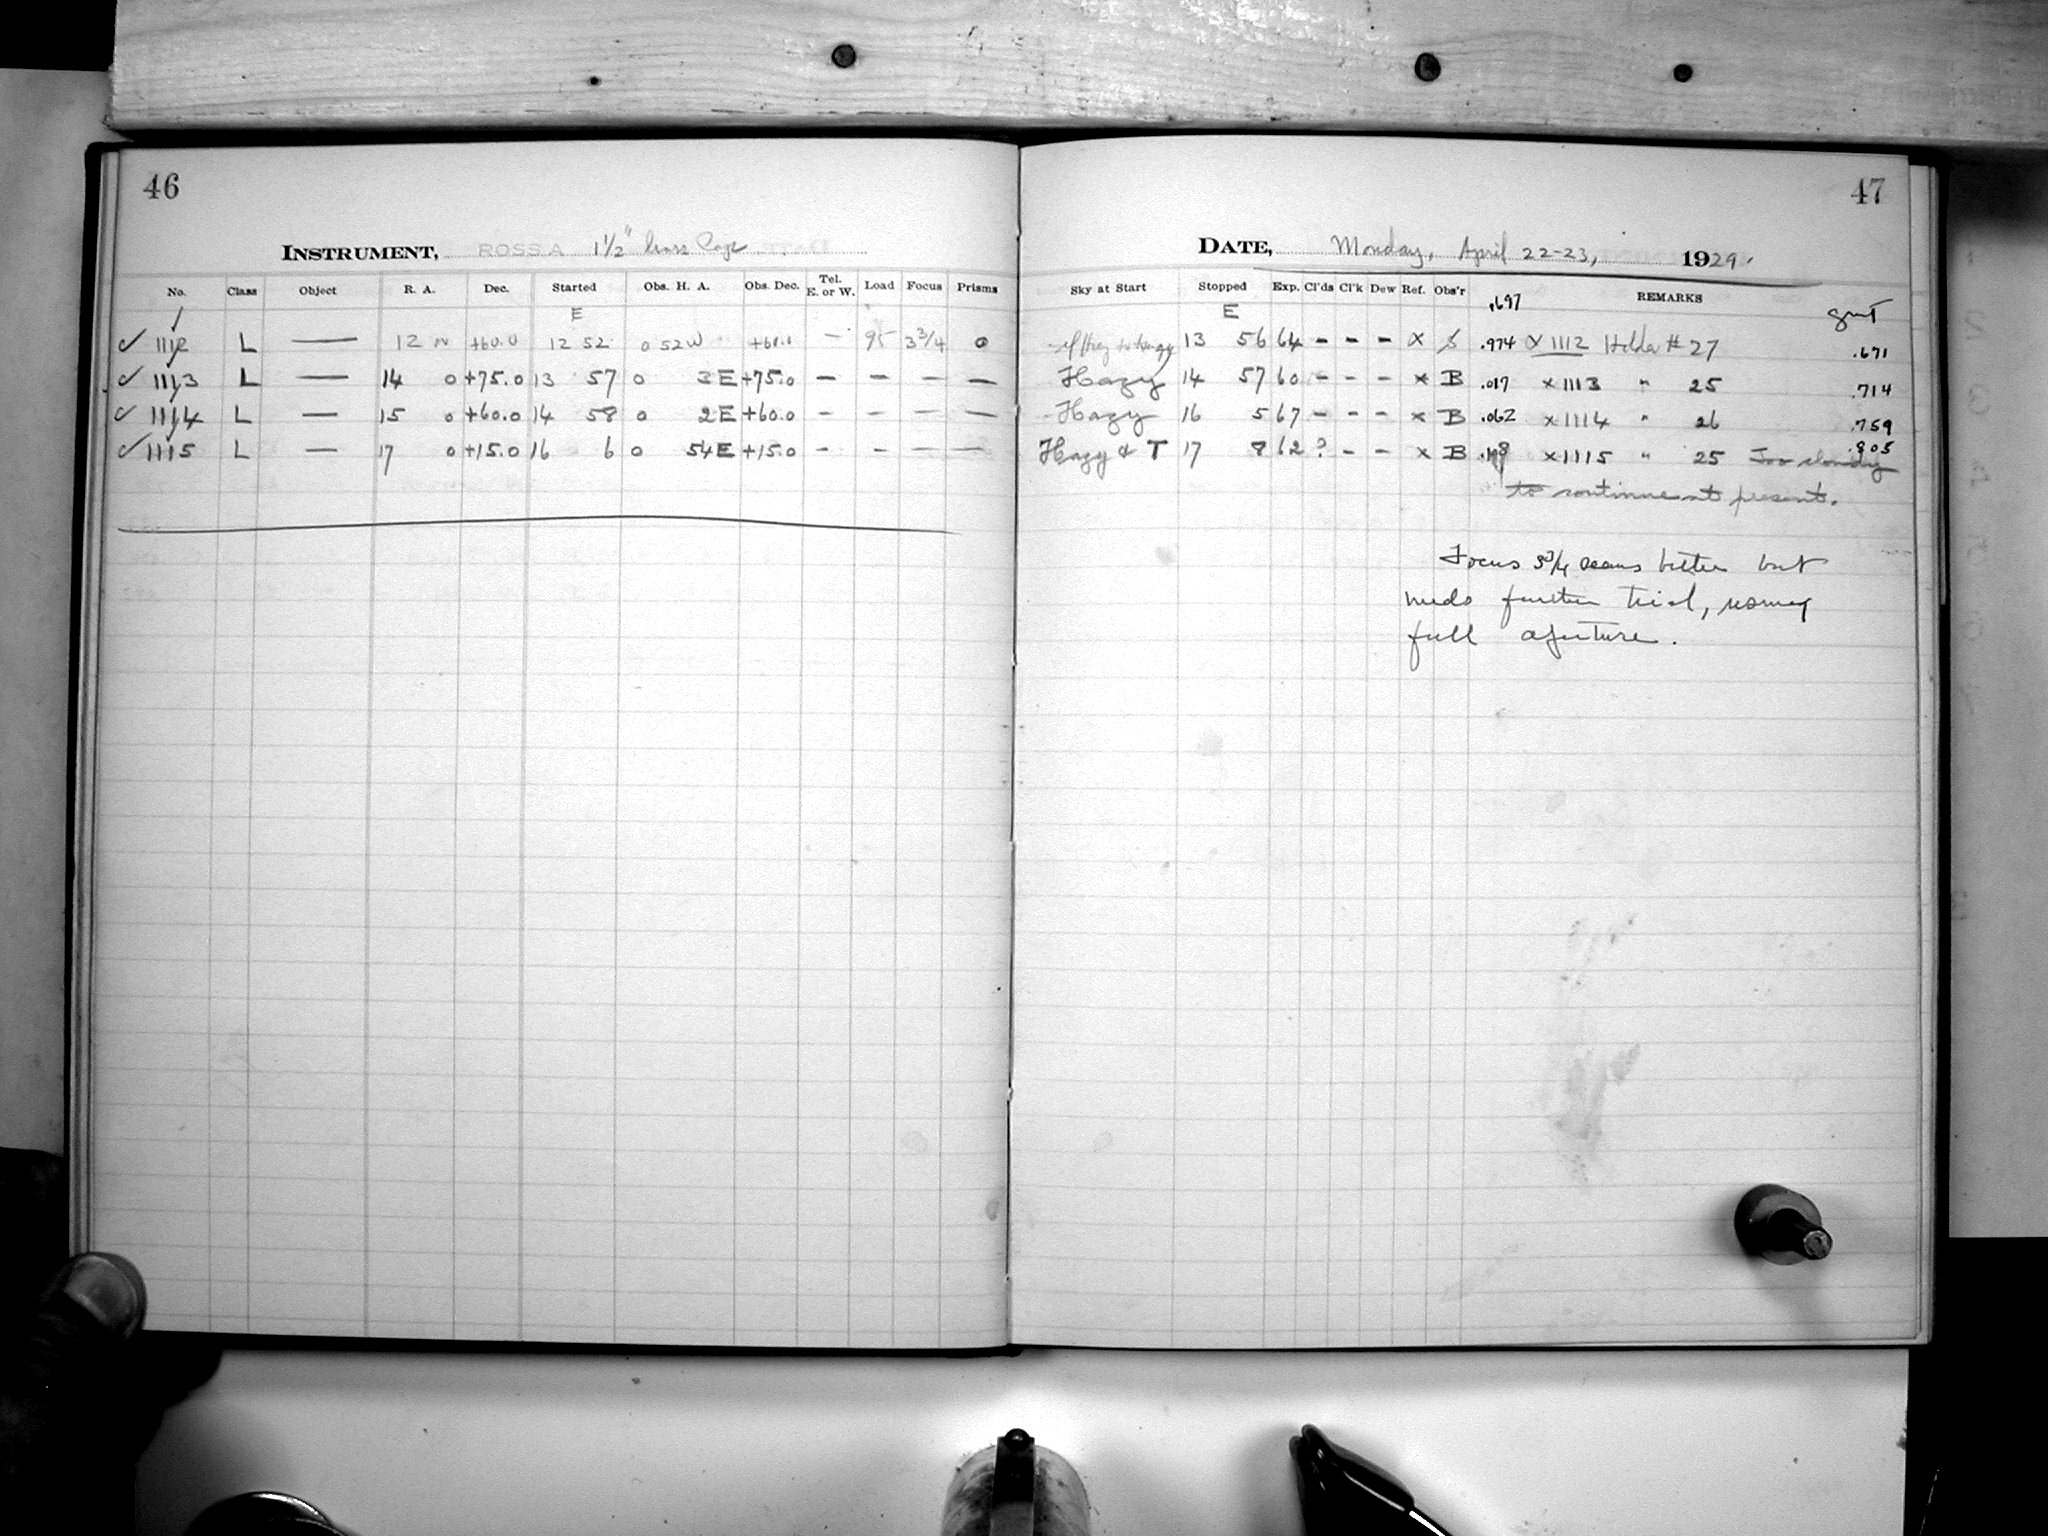 46
INSTRUMENT, ROSS A 1½" brass Cap
No. Class Object R. A. Dec. Started Obs. H. A. Obs. Dec. Tel. E. or W. Load Focus Prisms
E
✓ 1112 L — 12 +60.0 12 52 0 52 W +60.0 — 95 3¾ 0
✓ 1113 L — 14 0 +75.0 13 57 0 3 E +75.0 – – – –
✓ 1114 L — 15 0 +60.0 14 58 0 2 E +60.0 – – – –
✓ 1115 L — 17 0 +15.0 16 6 0 54 E +15.0 – – – –
47
DATE, Monday, April 22-23, 1929.
Sky at Start Stopped Exp. Cl'ds Cl'k Dew Ref. Obs'r REMARKS
E .697 GMT
hazy 13 56 64 – – – x S .974 x 1112 Holder # 27 .671
Hazy 14 57 60 – – – x B .017 x 1113 " 25 .714
Hazy 16 5 67 – – – x B .062 x 1114 " 26 .759
Hazy & T 17 8 62 ? – – x B x 1115 " 25 Too cloudy .805
to continue at present.
Focus 3¾ seems better but
needs further trial, using
full aperture.